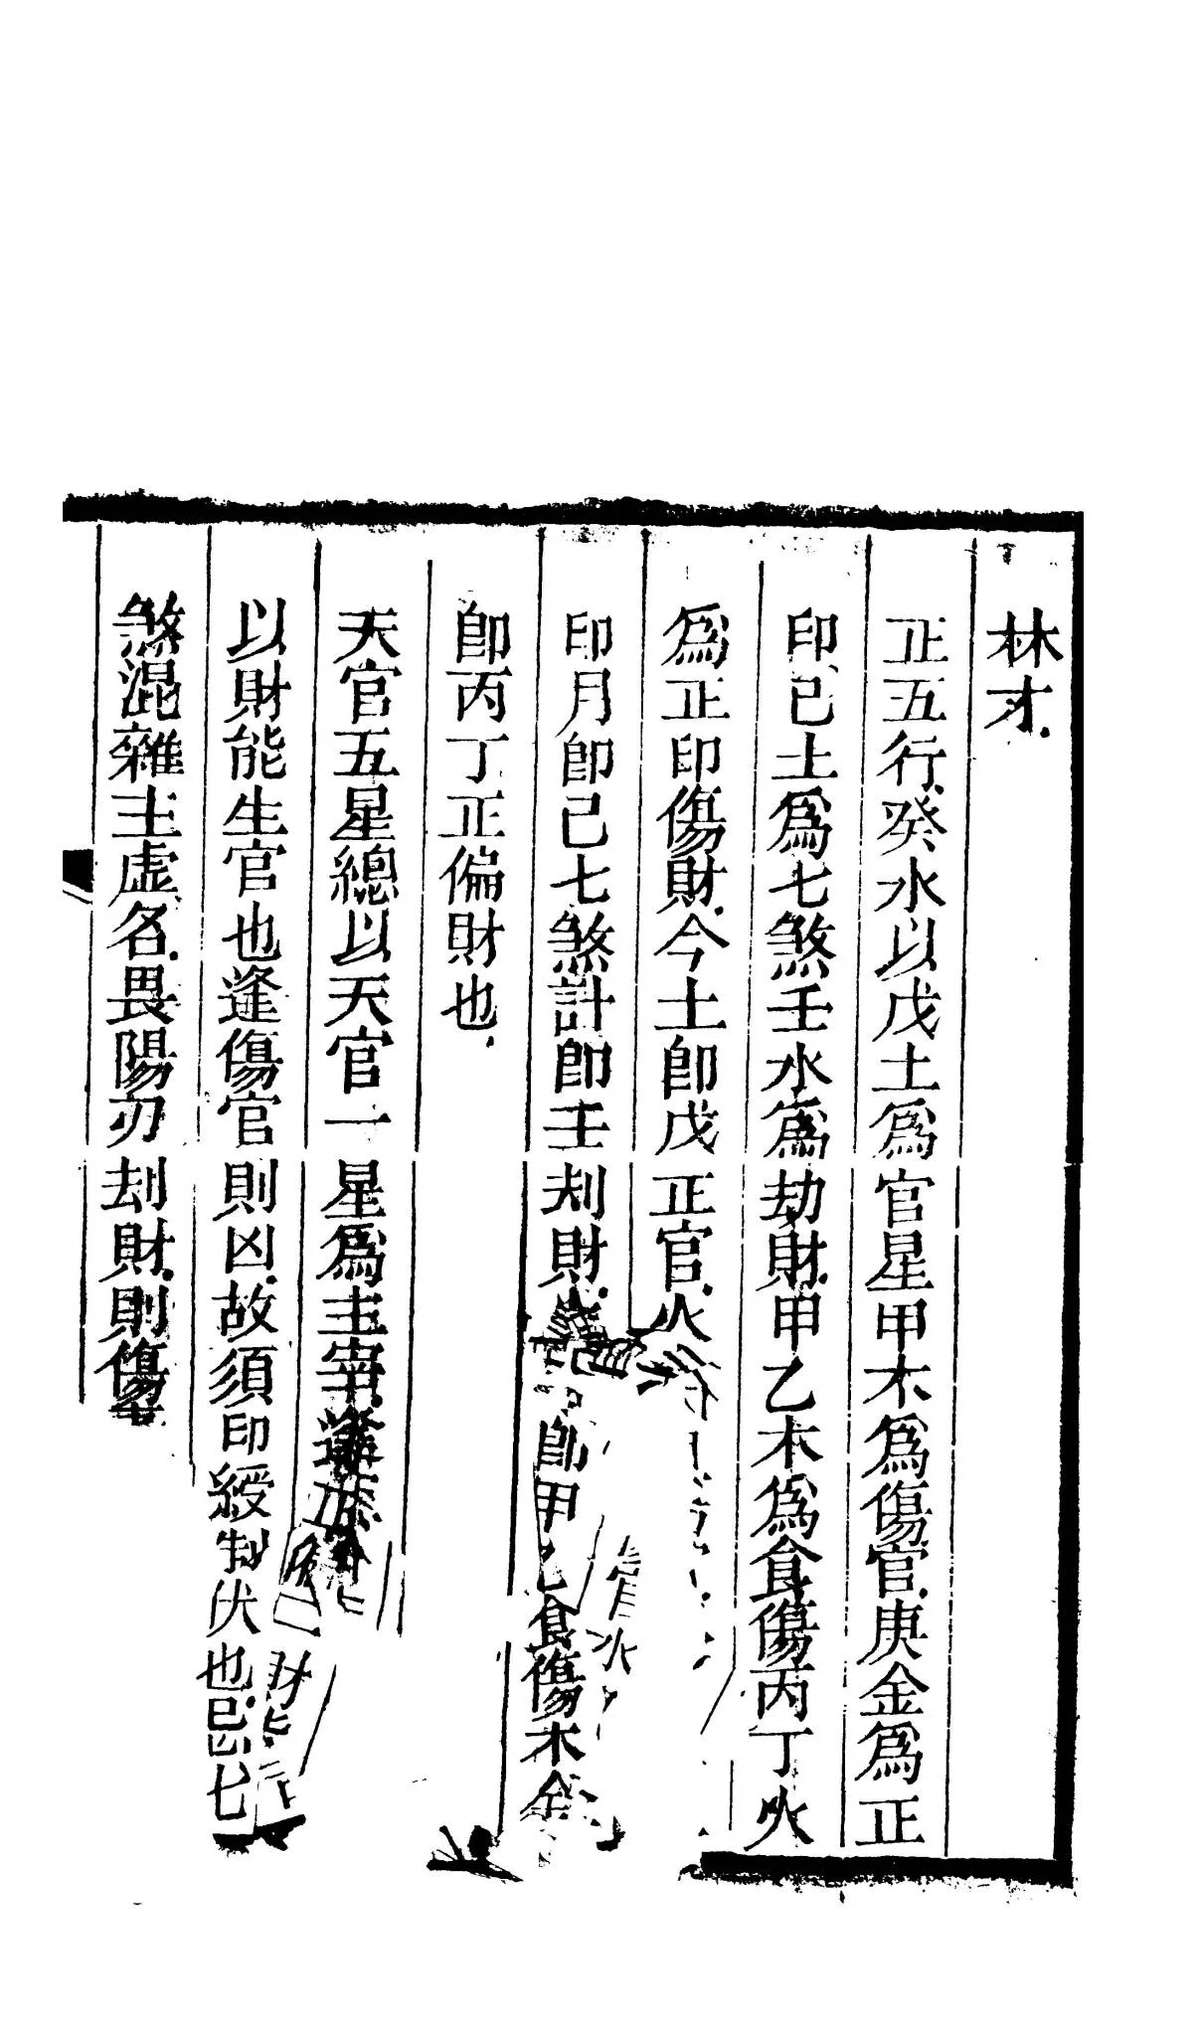 林才
正五行癸水以戊土爲官星甲木爲傷官庚金爲正
印己土爲七煞壬水爲劫財甲乙木爲食傷丙丁火
爲正印傷財今土卽戊正官火
印月卽己七煞計卽壬刦財卽甲乙食傷木金
卽丙丁正偏財也
天官五星總以天官一星爲主宰逢
以財能生官也逢傷官則凶故須印綬制伏也忌七
煞混雜主虛名畏陽刃刦財則傷